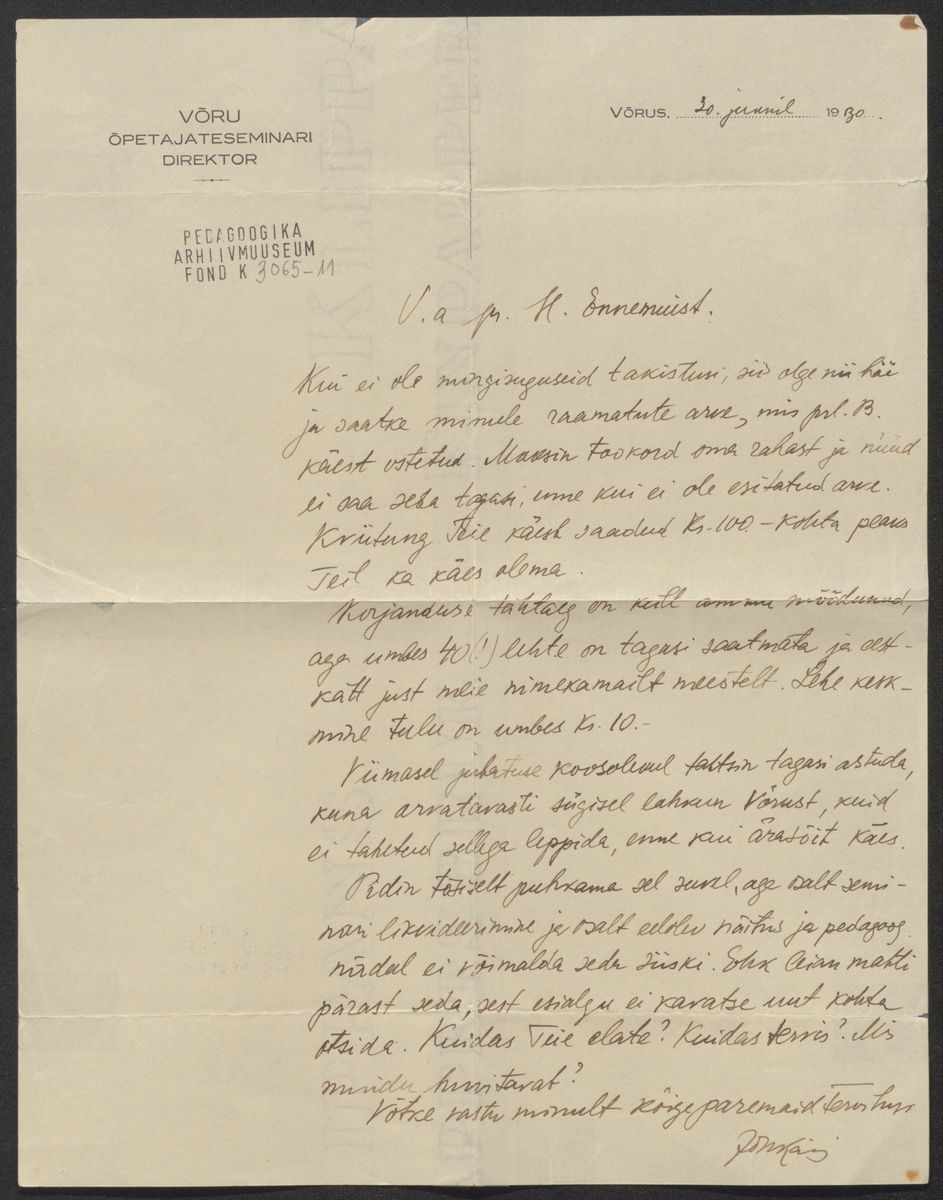 VÕRU
ÕPETAJATESEMINARI
DIREKTOR
VÕRUS, 30. juunil 1930.
PEDAGOOGIKA
ARHIIVMUUSEUM
FOND K 3065-11
V. a pr. H. Ennemuist.
Kui ei ole mingisuguseid takistusi, siis olge nii hää
ja saatke minule raamatute arve, mis prl. B.
käest ostetud. Maksin tookord oma rahast ja nüüd
ei saa seda tagasi, enne kui ei ole esitatud arve.
Kviitung Teie käest saadud Kr. 100.- kohta peaks
Teil ka käes olema.
Korjanduse tähtaeg on küll ammu möödunud,
aga umbes 40(!) lehte on tagasi saatmata ja eest-
kätt just meie nimekamailt meestelt. Lehe kesk-
mine tulu on umbes Kr. 10.-
Viimasel juhatuse koosolekul tahtsin tagasi astuda,
kuna arvatavasti sügisel lahkun Võrust, kuid
ei tahetud sellega leppida, enne kui ärasõit käes.
Pidin tõsiselt puhkama sel suvel, aga osalt semi-
nari likvideerimine ja osalt eelolev näitus ja pedagoog.
nädal ei võimalda seda siiski. Ehk leian mahti
pärast seda, sest esialgu ei kavatse uut kohta
otsida. Kuidas Teie elate? Kuidas tervis? Mis
muidu huvitavat?
Võtke vastu minult kõige paremaid tervitusi
Joh Käis